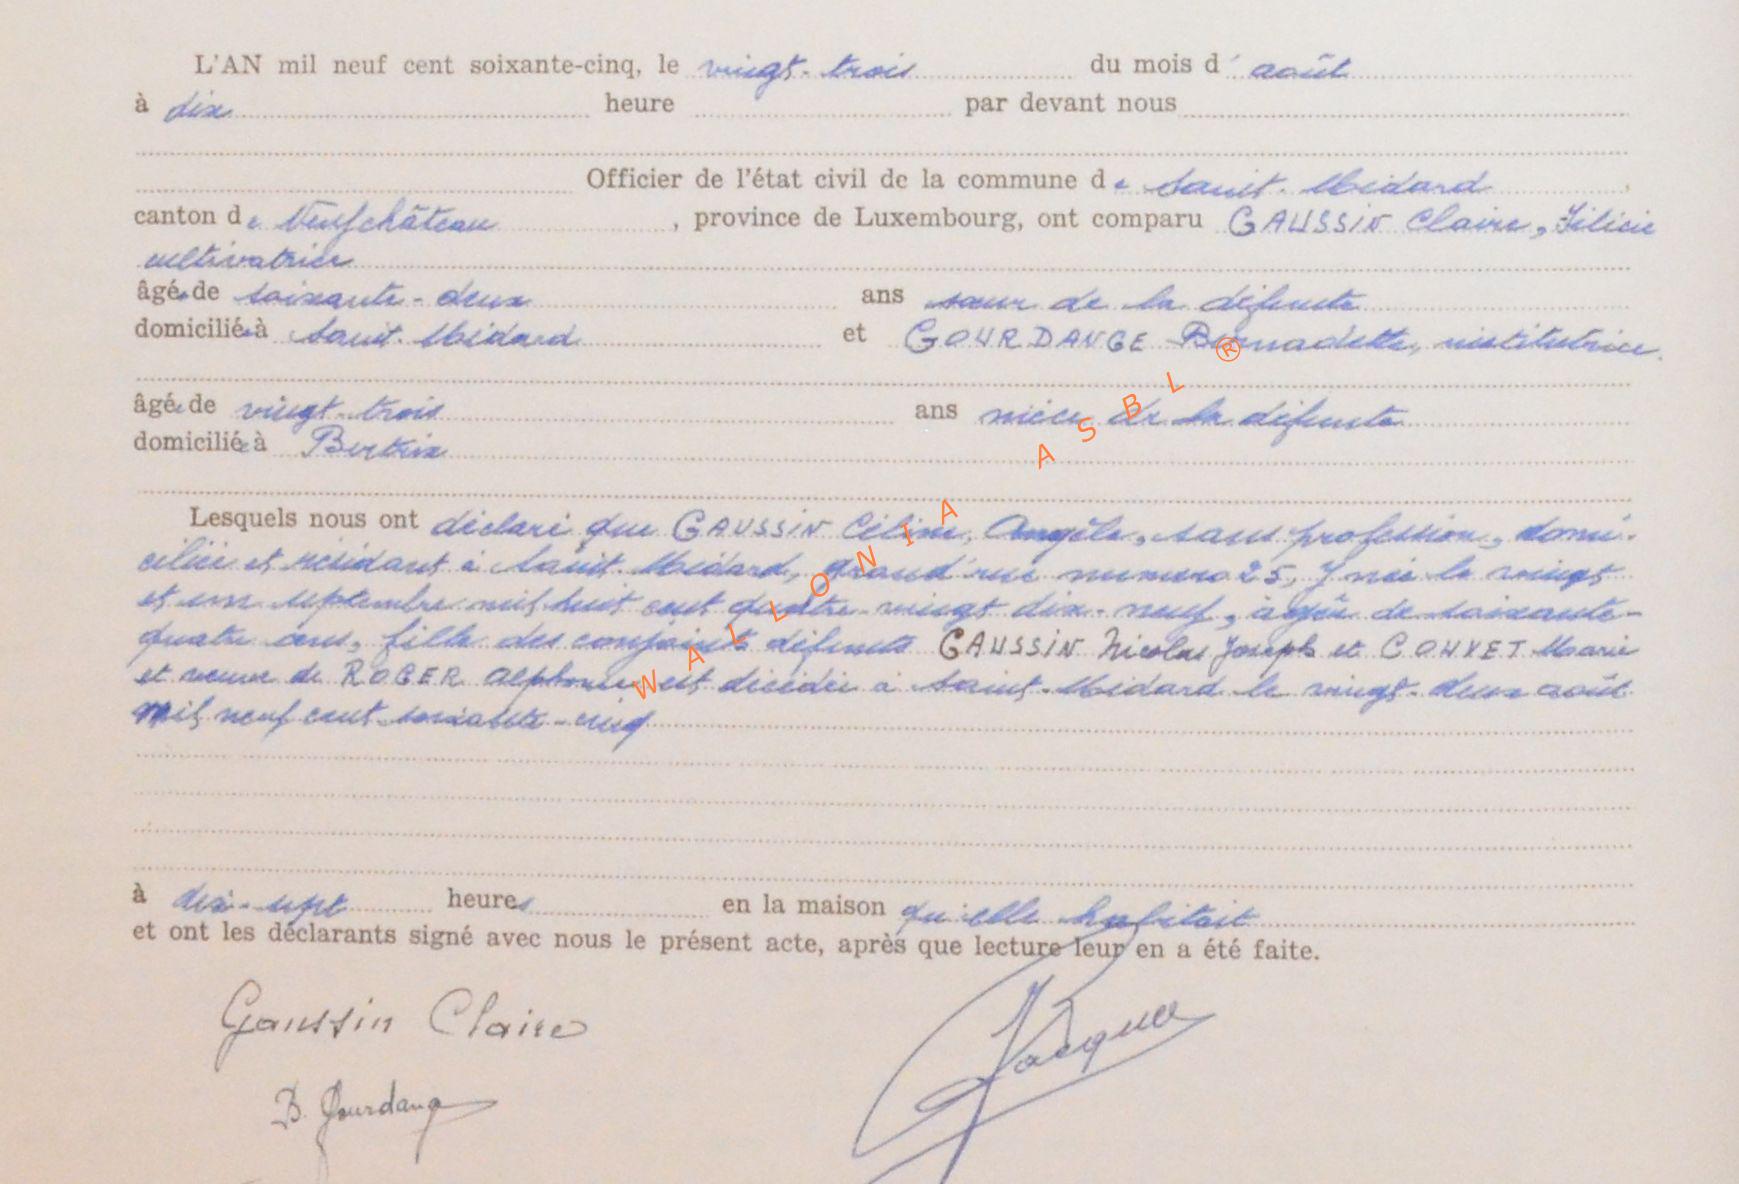 L'AN mil neuf cent soixante-cinq, le vingt-trois du mois d' août
à dix heure par devant nous
Officier de l'état civil de la commune de Saint-Médard
canton de Neufchâteau, province de Luxembourg, ont comparu GAUSSIN Claire, Félicie
cultivatrice
âgée de soixante-deux ans sœur de la défunte
domiciliée à Saint-Médard et GOURDANGE Bernadette, institutrice.
âgée de vingt-trois ans nièce de la défunte
domiciliée à Bertrix
Lesquels nous ont déclaré que GAUSSIN Céline, Angèle, sans profession, domi-
ciliée et résidant à Saint-Médard, grand'rue numéro 25, y née le vingt
et un septembre mil huit cent quatre-vingt dix-neuf, âgée de soixante-
quatre ans, fille des conjoints défunts GAUSSIN Nicolas Joseph et GOUVET Marie
et veuve de ROGER Alphonse est décédée à Saint-Médard le vingt-deux août
mil neuf cent soixante-cinq
à dix-sept heures en la maison qu'elle habitait
et ont les déclarants signé avec nous le présent acte, après que lecture leur en a été faite.
Gaussin Claire
Jacques
B. Gourdang
WALLONIA ASBL ®